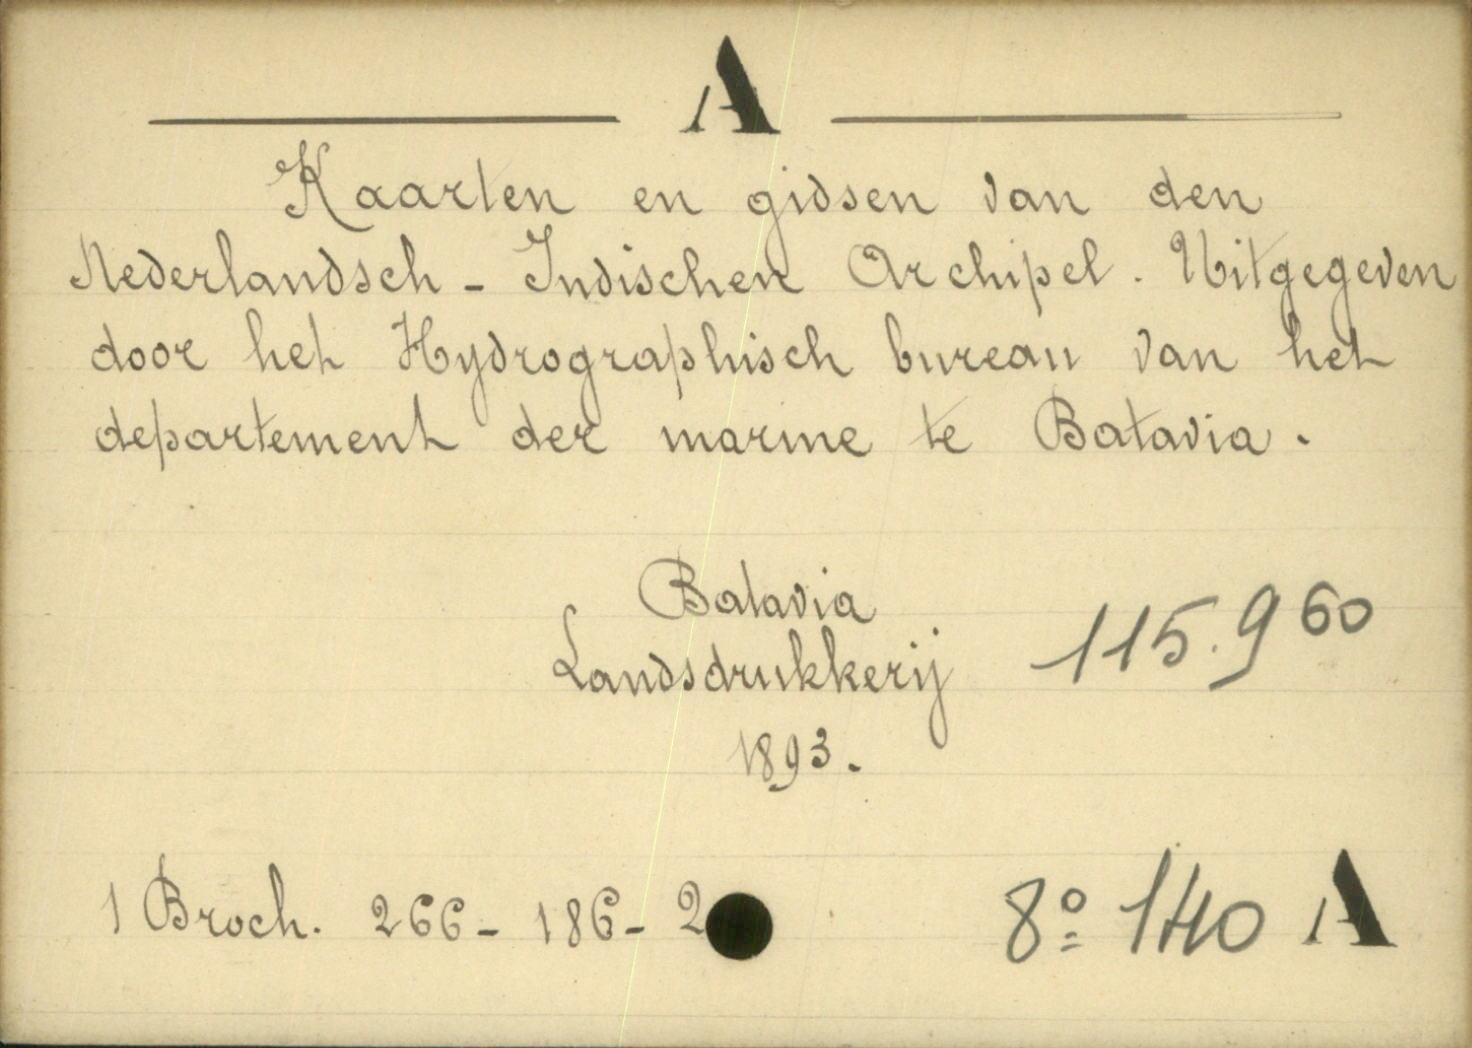 A
Kaarten en gidsen van den
Nederlandsch - Indischen Archipel. Uitgegeven
door het Hydrographisch bureau van het
departement der marine te Batavia.
Batavia
Landsdrukkerij
115.960
1893.
1 Broch. 266 - 186 - 2
8º 140 A